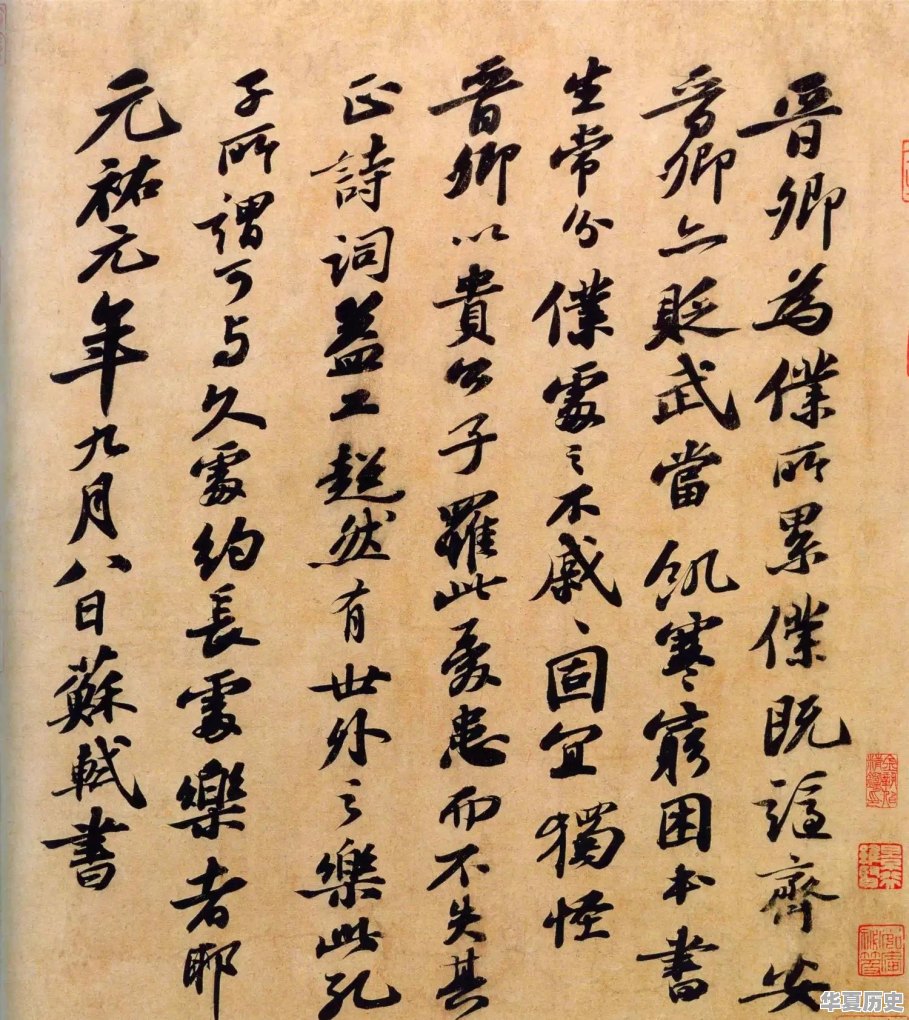 晉卿為僕所累僕既謫齊安
晉卿亦貶武當飢寒窮困本書
生常分僕處之不戚戚固宜獨怪
晉卿以貴公子罹此憂患而不失其
正詩詞益工超然有世外之樂此孔
子所謂可與久處約長處樂者耶
元祐元年九月八日蘇軾書
华夏历史